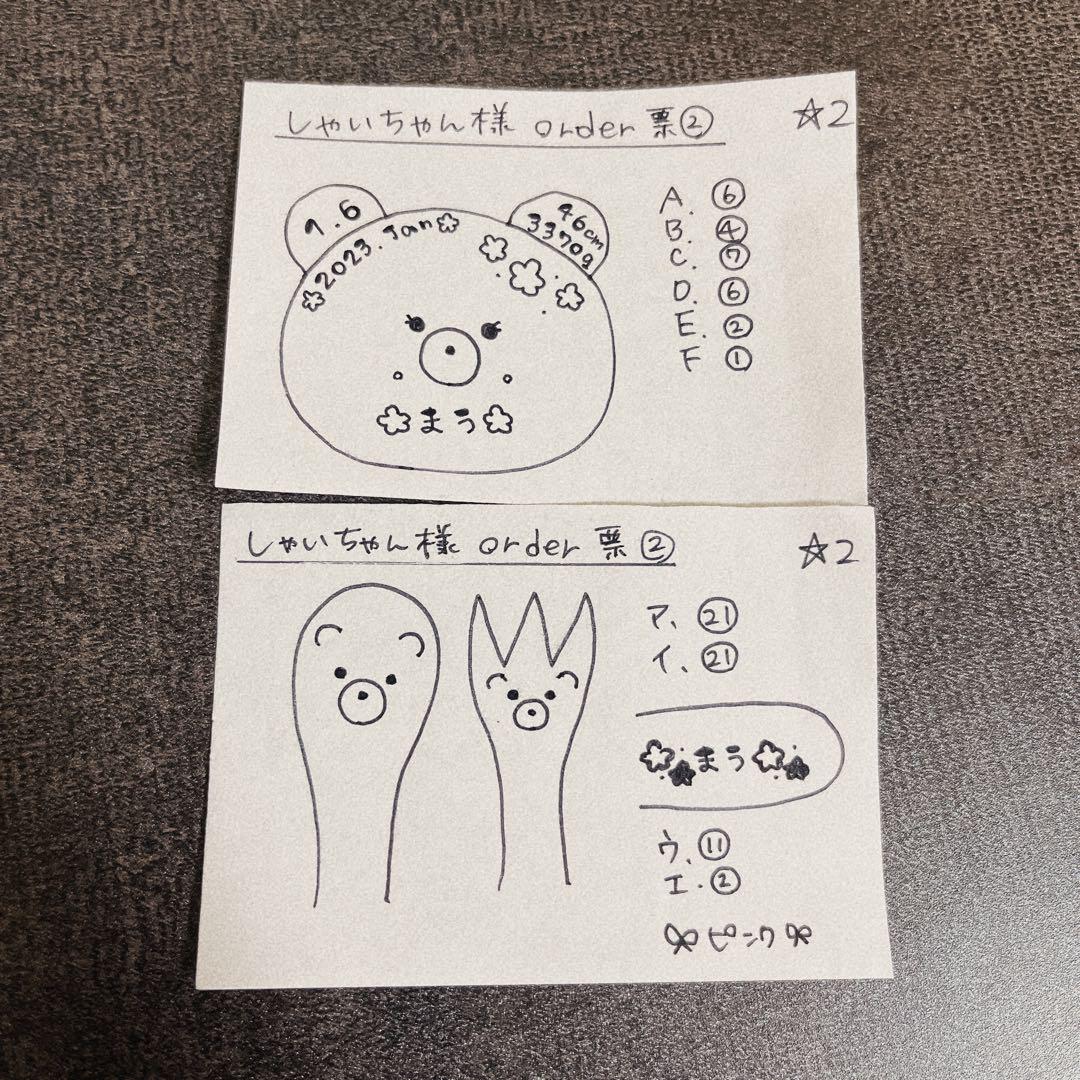 しゃいちゃん様 order 票②
☆2
1.6
2023.Jan
46cm
3370g
まう
A. ⑥
B. ④
C. ⑦
D. ⑥
E. ②
F ①
しゃいちゃん様 order 票②
☆2
ア、㉑
イ、㉑
まう
ウ、⑪
エ.②
ピンク